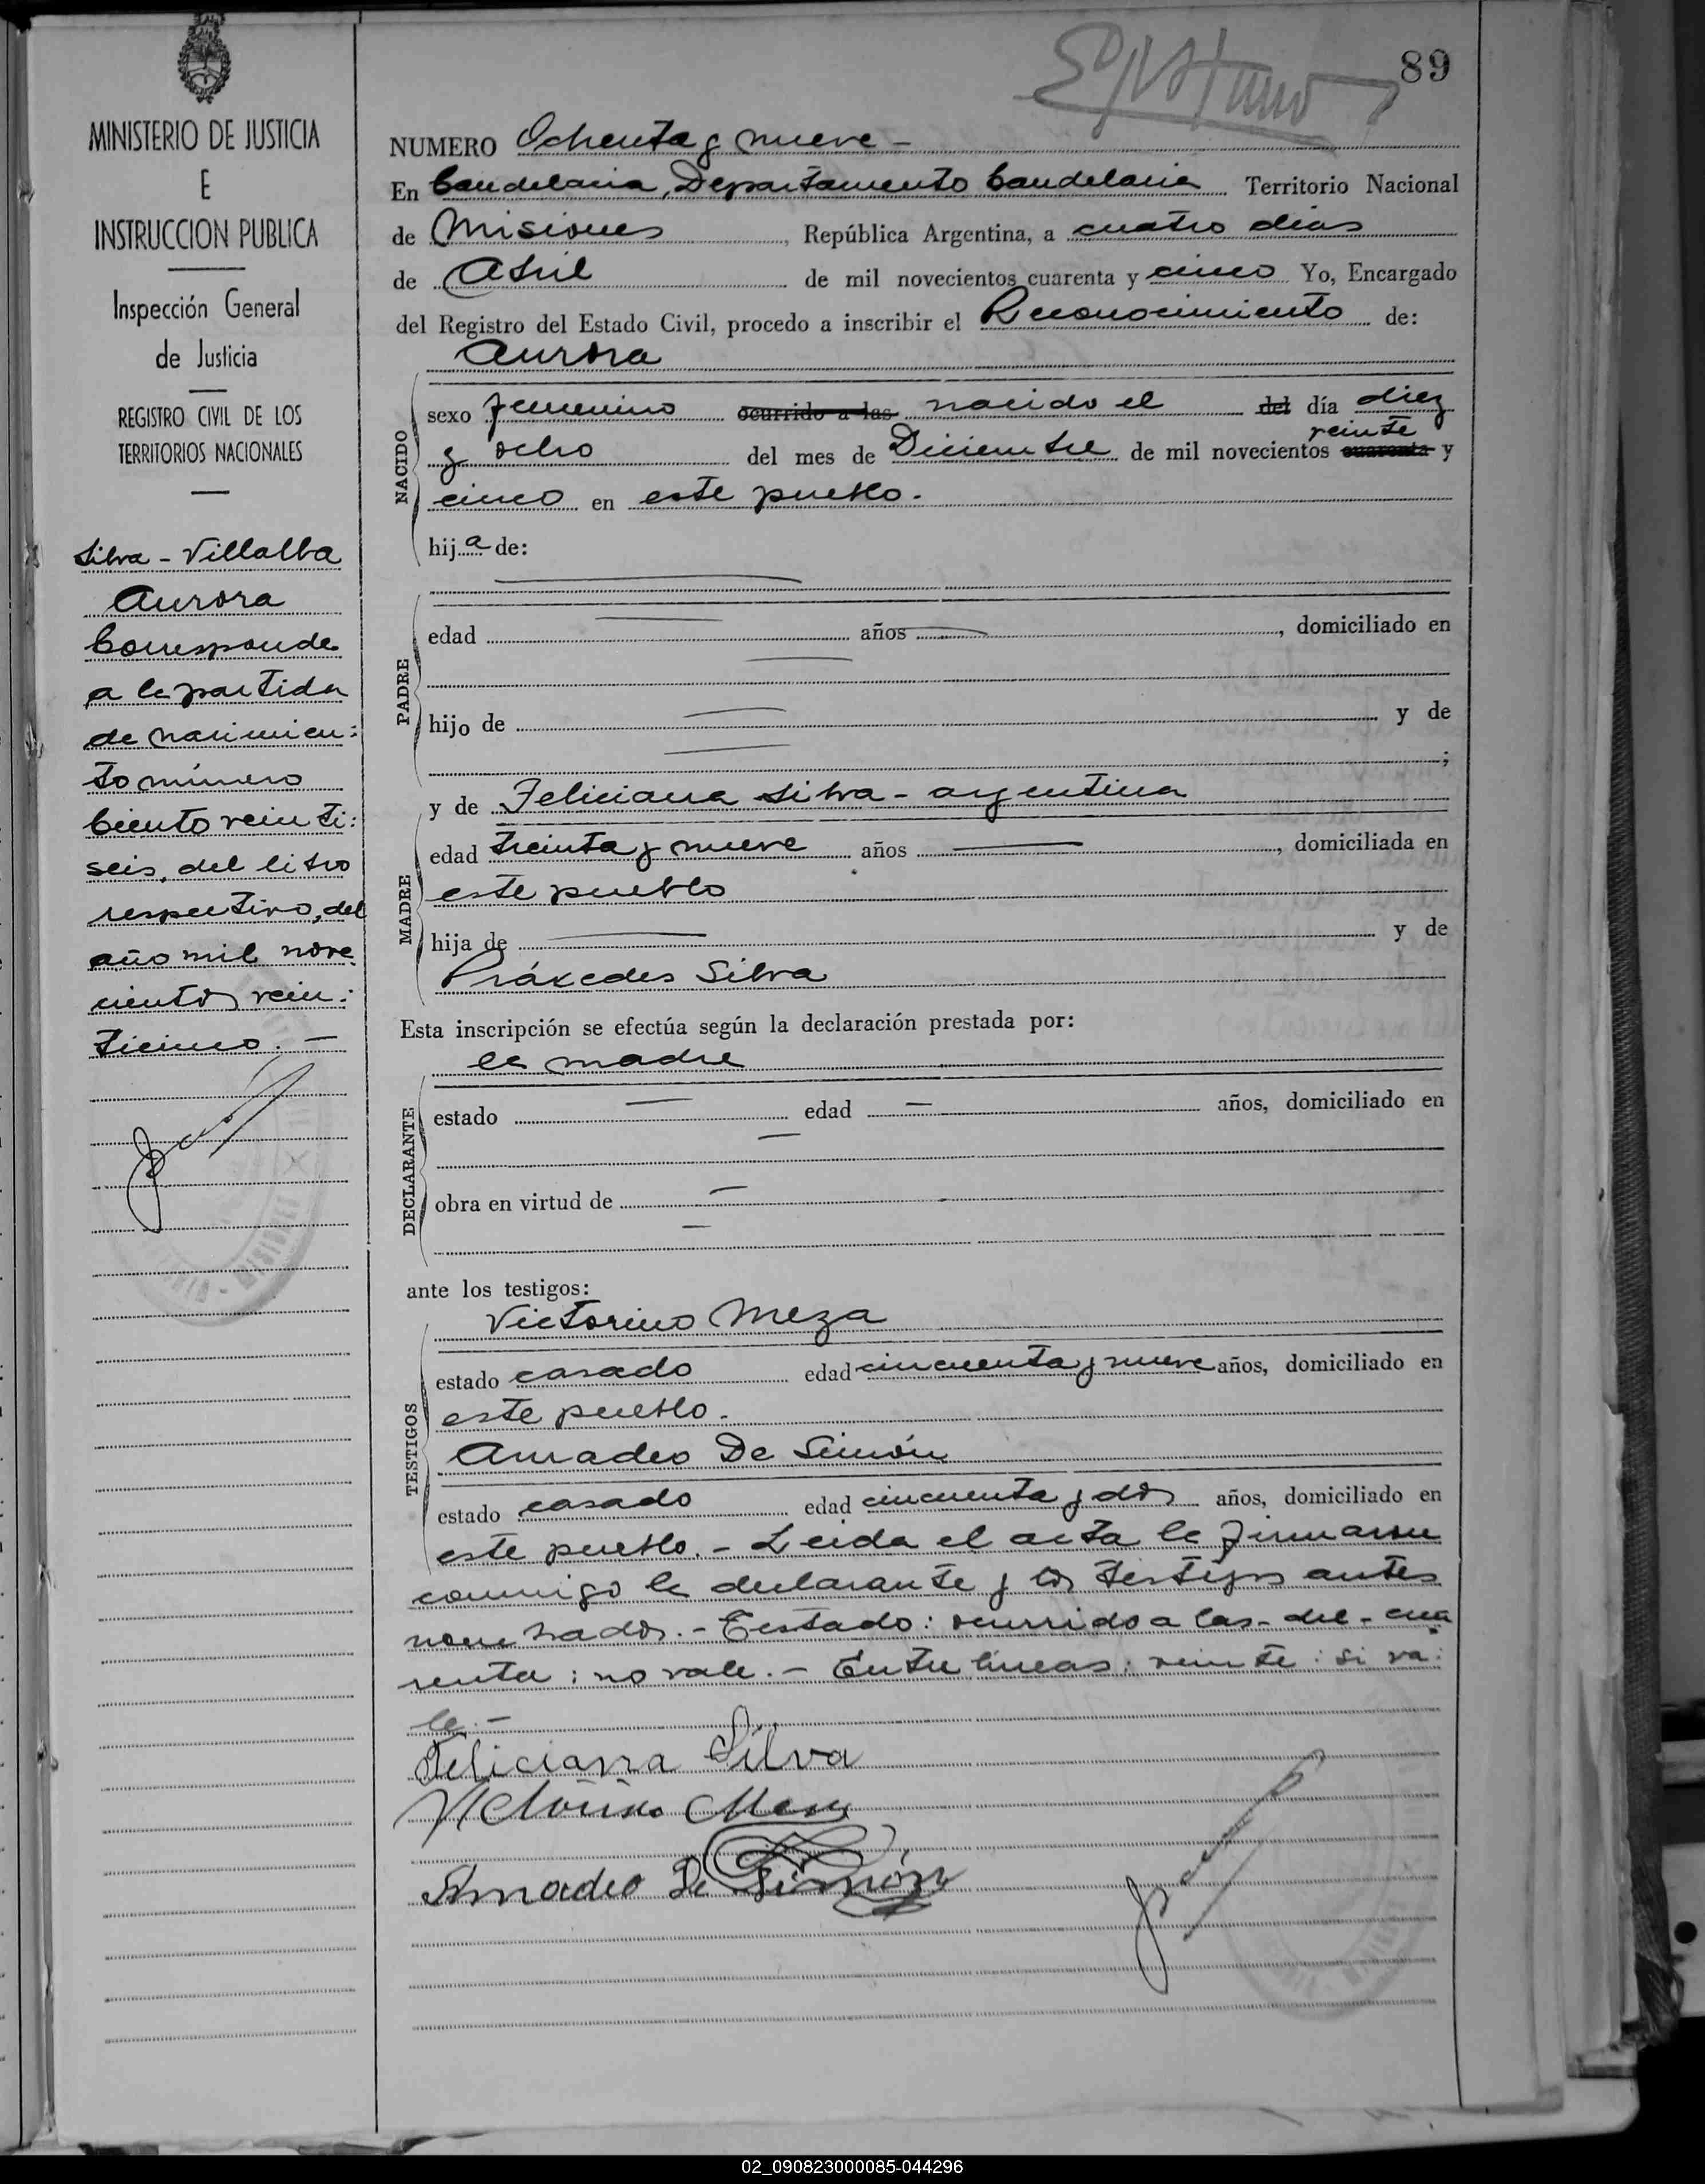 89
MINISTERIO DE JUSTICIA
E
INSTRUCCION PUBLICA
Inspección General
de Justicia
REGISTRO CIVIL DE LOS
TERRITORIOS NACIONALES
Silva - Villalba
Aurora
Corresponde
a la partida
de nacimien:
to número
Ciento veinti:
seis, del libro
respectivo, del
año mil nove
cientos vein:
ticinco. -
NUMERO Ochenta y nueve -
En Candelaria, Departamento Candelaria Territorio Nacional
de Misiones, República Argentina, a cuatro días
de Abril de mil novecientos cuarenta y cinco Yo, Encargado
del Registro del Estado Civil, procedo a inscribir el Reconocimiento de:
Aurora
NACIDO
sexo femenino ocurrido a las nacido el del día diez
y ocho del mes de Diciembre de mil novecientos cuarenta veinte y
cinco en este pueblo.
hija de:
PADRE
edad años, domiciliado en
hijo de y de
;
MADRE
y de Feliciana Silva - argentina
edad treinta y nueve años, domiciliada en
este pueblo
hija de y de
Práxedes Silva
Esta inscripción se efectúa según la declaración prestada por:
la madre
DECLARANTE
estado edad años, domiciliado en
obra en virtud de
ante los testigos:
TESTIGOS
Victorino Meza
estado casado edad cincuenta y nueve años, domiciliado en
este pueblo.
Amadeo De Simón
estado casado edad cincuenta y dos años, domiciliado en
este pueblo. - Leida el acta la firmaron
conmigo la declarante y los testigos antes
nombrados. - Testado: ocurrido a las - del - cua
renta: no vale. - Entre líneas: veinte: si va:
le. -
Feliciana Silva
Victorino Meza
Amadeo De Simón
02_090823000085-044296